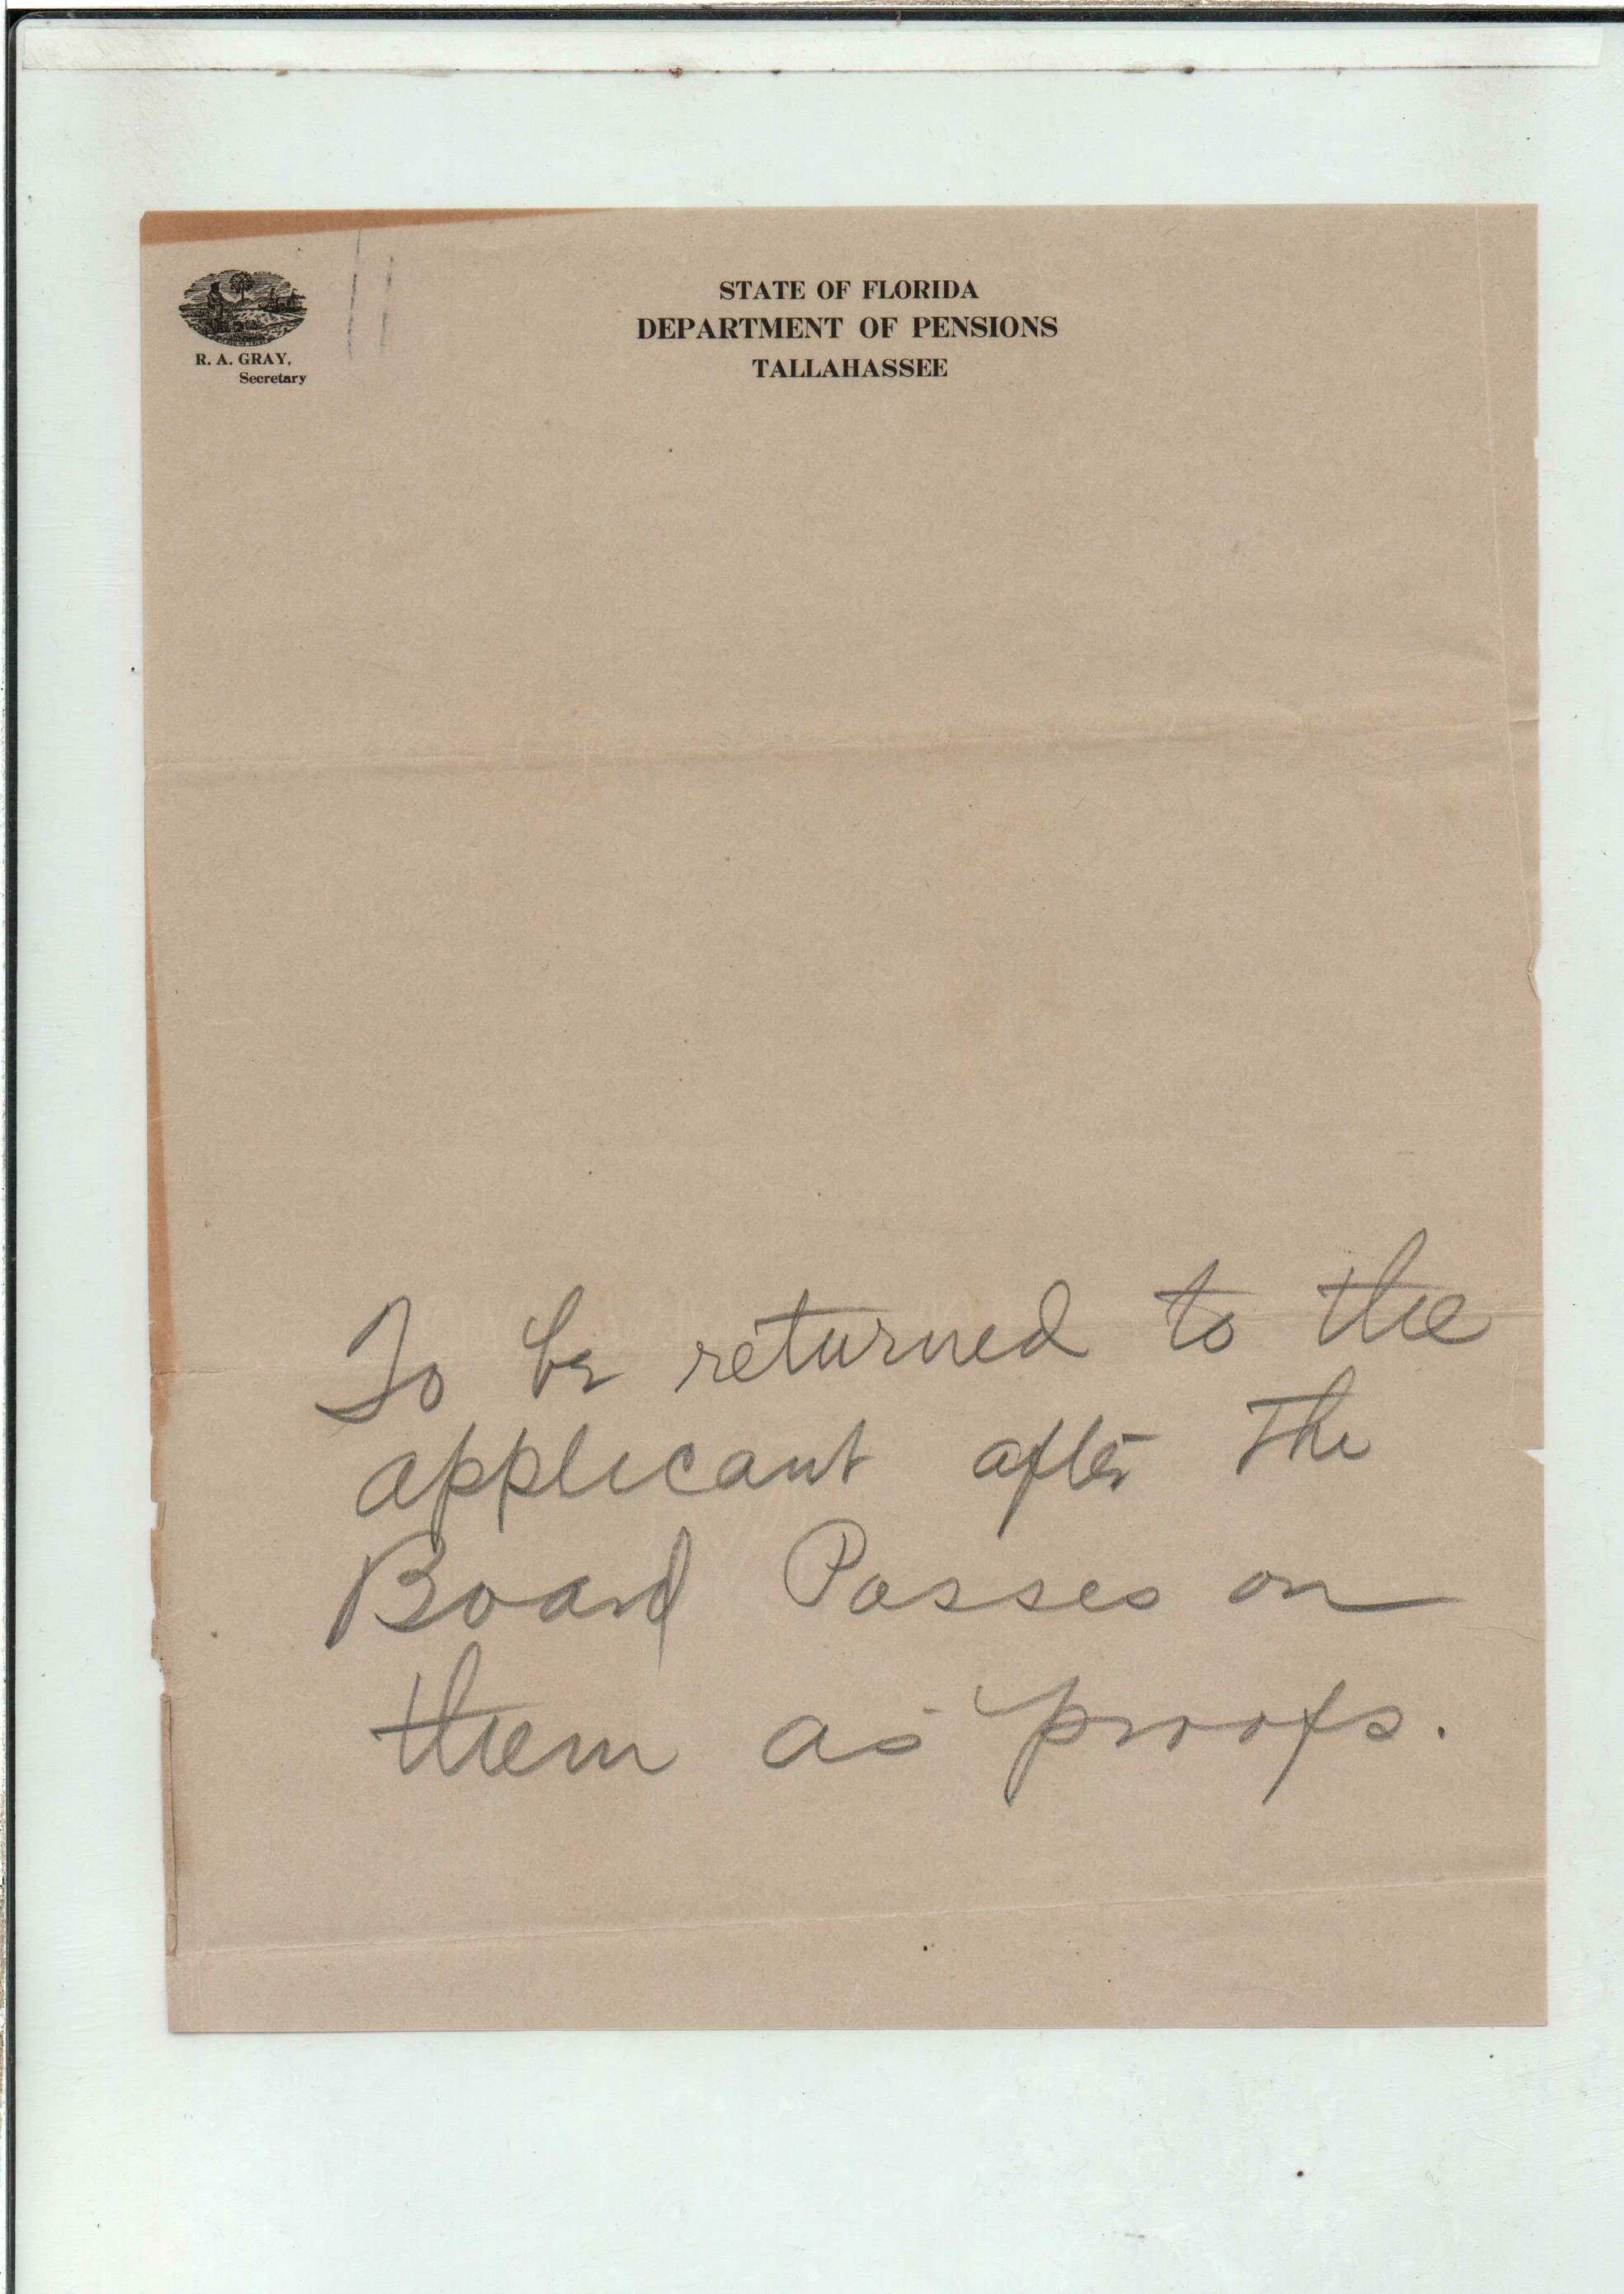 STATE OF FLORIDA
DEPARTMENT OF PENSIONS
TALLAHASSEE
R. A. GRAY,
Secretary
To be returned to the
applicant after the
Board Passes on
them as proofs.